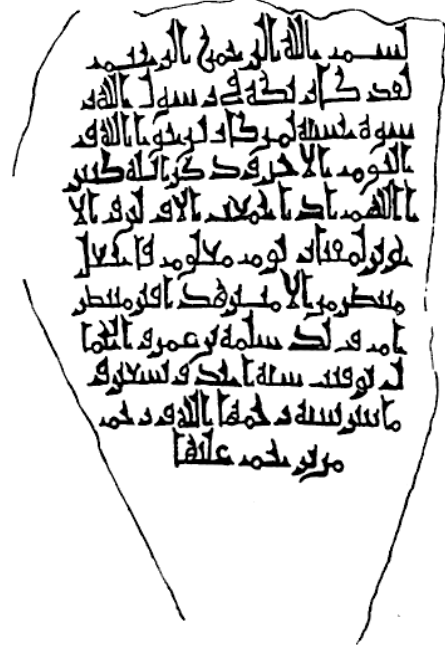 بسم الله الرحمن الرحيم
لقد كان لكم في رسول الله ا
سوة حسنة لمن كان يرجو الله و
اليوم الاخر وذكر الله كثير
ا اللهم اذا جمعت الاولين والا
خرين لميقات يوم معلوم فاجعل
من الامنين وهذا قبر
ام ولد سلمة بن عمرو
توفيت سنة احدى وتسعين و
مائتين سنة رحمها الله ورحم
من ترحم عليها